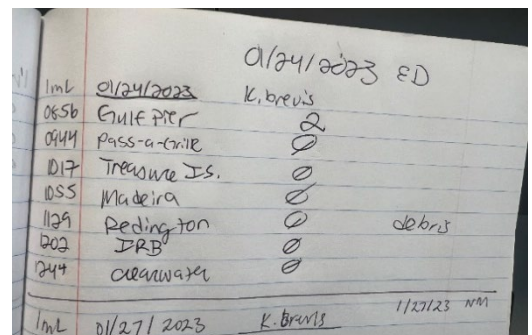 01/24/2023 ED
1mL 01/24/2023 K.brevis
0856 Gulf Pier 2
0944 Pass-a-Grille Ø
1017 Treasure Is. Ø
1055 Madeira Ø
1129 Redington Ø debris
1202 IRB Ø
1244 Clearwater Ø
1/27/23 NM
1mL 01/27/2023 K.brevis